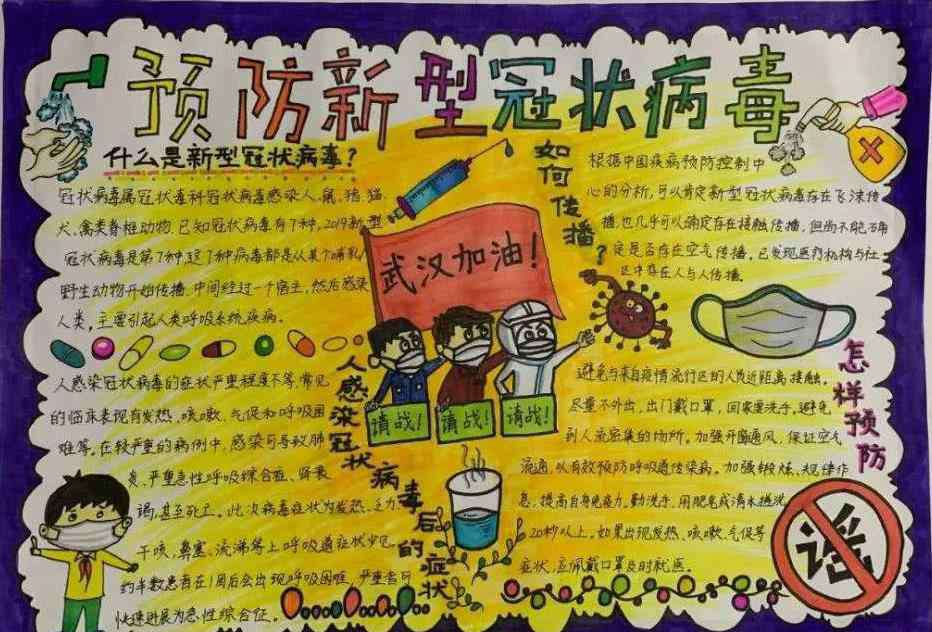 预防新型冠状病毒
什么是新型冠状病毒?
冠状病毒属冠状毒科冠状病毒感染人、鼠、猪、猫、
犬、禽类脊椎动物.已知冠状病毒有7种,2019新型
冠状病毒是第7种,这7种病毒都是从某个哺乳
野生动物开始传播.中间经过一个宿主,然后感染
人类。主要引起人类呼吸系统疾病。
如何传播?
根据中国疾病预防控制中
心的分析,可以肯定新型冠状病毒存在飞沫传
播.也几乎可以确定存在接触传播,但尚不能确
定是否存在空气传播.已发现医疗机构与社
区中存在人与人传播.
武汉加油!
请战!
请战!
请战!
人感染冠状病毒后的症状
人感染冠状病毒的症状严重程度不等,常见
的临床表现有发热、咳嗽、气促和呼吸困
难等。在较严重的病例中,感染可导致肺
炎、严重急性呼吸综合症、肾衰
竭,甚至死亡。此次病毒症状为发热、乏力、
干咳、鼻塞、流涕等上呼吸道症状少见
约半数患者在1周后会出现呼吸困难,严重者可
快速进展为急性综合征。
怎样预防
避免与来自疫情流行区的人员近距离接触。
尽量不外出,出门戴口罩,回家要洗手.避免
到人流密集的场所。加强开窗通风,保证空气
流通,以有效预防呼吸道传染病。加强锻炼、规律作
息、提高自身免疫力。勤洗手、用肥皂或清水搓洗
20秒以上。如果出现发热、咳嗽、气促等
症状,应佩戴口罩及时就医。
谣